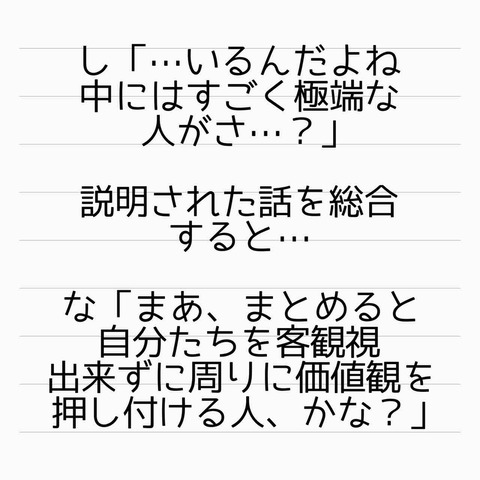 し「…いるんだよね
中にはすごく極端な
人がさ…？」
説明された話を総合
すると…
な「まあ、まとめると
自分たちを客観視
出来ずに周りに価値観を
押し付ける人、かな？」